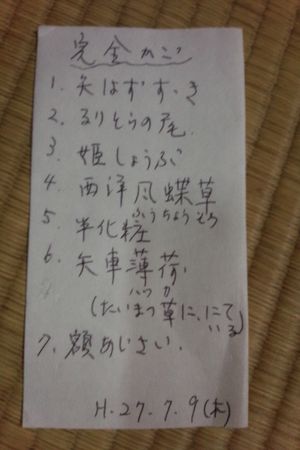 完全かご
1. 矢はずすゝき
2. るりとらの尾.
3. 姫しょうぶ
4. 西洋風蝶草
ふうちょうそう
5. 半化粧
6. 矢車薄荷
ハッカ
(たいまつ草に、にている)
7. 額あじさい.
H.27.7.9(木)